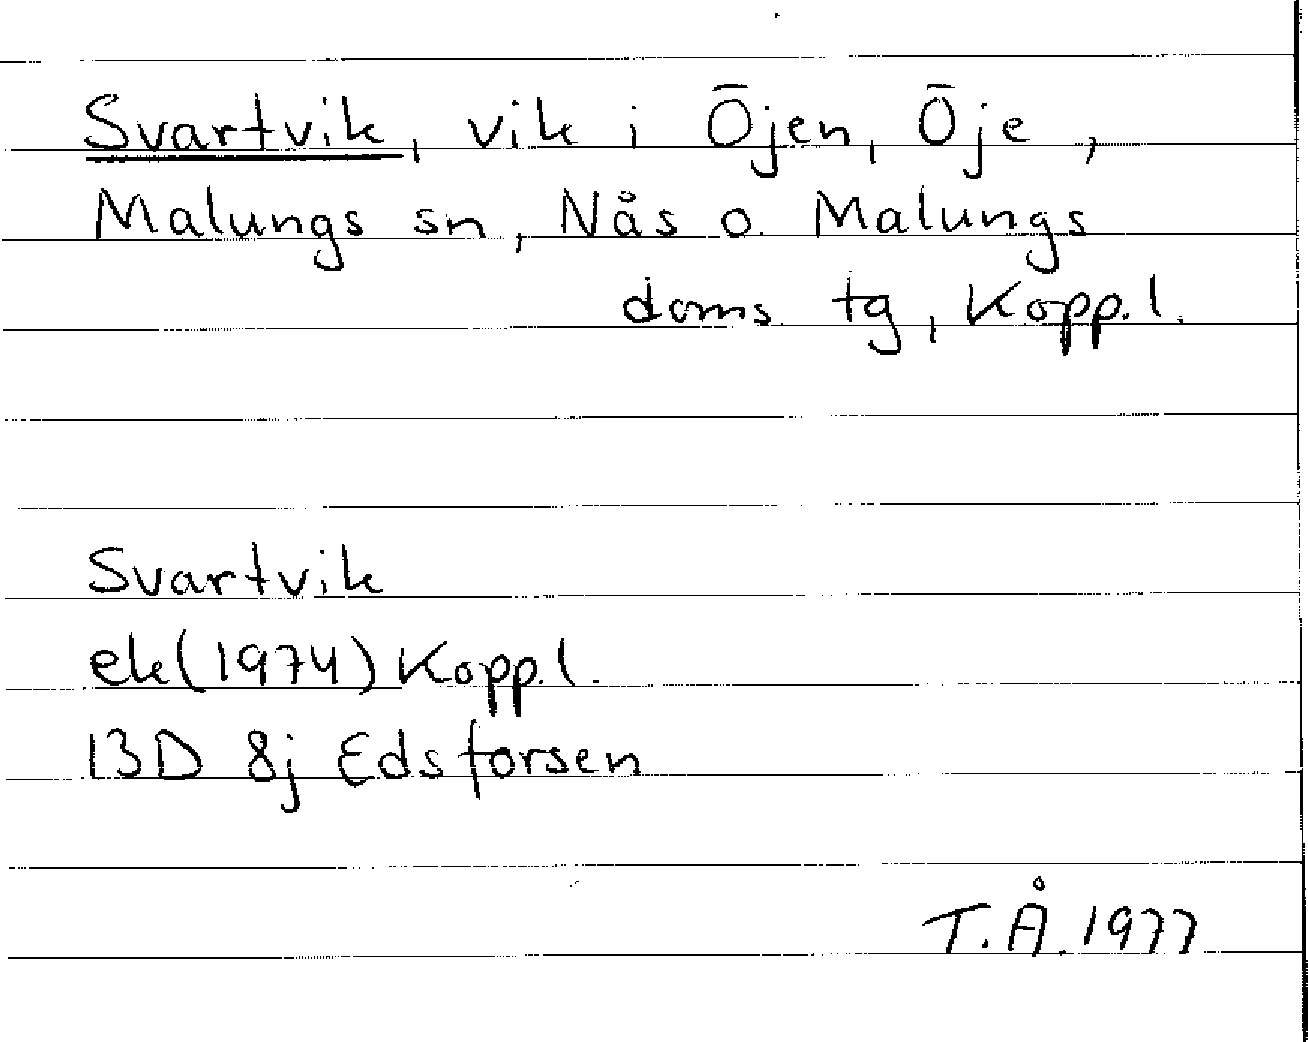 Svartvik, vik i Öjen, Öje,
Malungs sn, Nås o. Malungs
doms. tg, Kopp.l.
Svartvik
ek(1974) Kopp.l.
13D 8j Edsforsen
T.Å. 1977